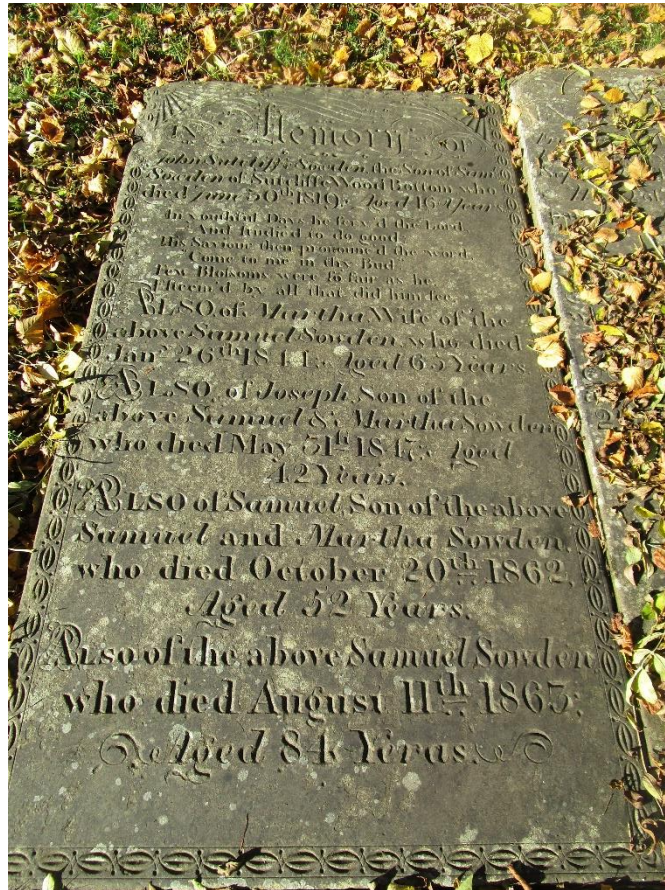 In Memory OF
John Sutcliffe Sowden, the Son of Saml
Sowden of Sutcliffe Wood Bottom who
died June 30th 1819, Aged 16 Years
In youthful Days he serv'd the Lord
And studied to do good,
His Saviour then pronounc'd the word,
Come to me in thy Bud.
Few Blossoms were so fair as he
Esteem'd by all that did him see.
ALSO of, Martha, Wife of the
above Samuel Sowden, who died
Jany 26th 1844, Aged 65 Years
ALSO, of Joseph, Son of the
above Samuel & Martha Sowden
who died May 31st 1847, Aged
42 Years.
ALSO of Samuel, Son of the above
Samuel and Martha Sowden,
who died October 20th 1862,
Aged 52 Years.
Also of the above Samuel Sowden
who died August 11th 1863;
Aged 84 Yeras.